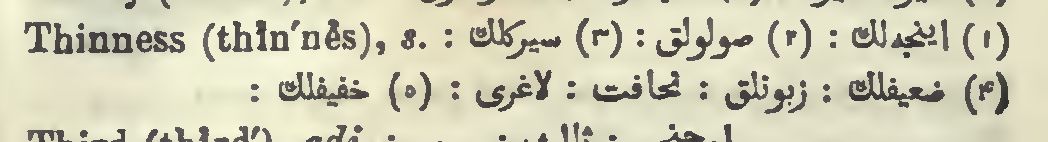 Thinness (thĭn′nĕs), s. (١) اینجه‌لك : (٢) صولولق : (٣) سیركلك :
(۴) ضعیفلك : زبونلق : نحافت : لاغری : (٥) خفیفلك :